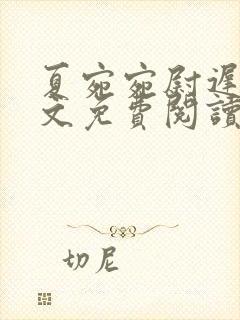 夏宛宛尉遲
文免費閱讀
切尼